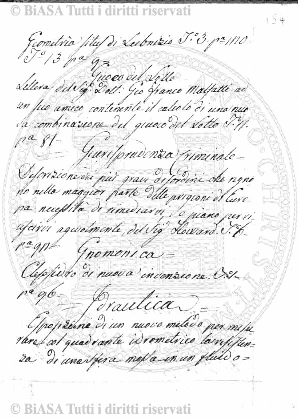 © BIASA Tutti i diritti riservati
154
Geometria situs di Leibnizio T.° 3. p.ª 110
T.° 13 p.ª 97
Giuoco del Lotto
Lettera del Sig.r Dott. Gio Franco Malfatti ad
un suo amico contenente il calcolo di una nuo
va combinazione del giuoco del Lotto T.°
p.ª 81
Giurisprudenza Criminale
Descrizione dei più gravi disordini che regna
no nella maggior parte delle prigioni di Euro
pa necessità di rimediarvi, e piano per ri
uscirvi agevolmente del Sig.r Howard T.°
p.ª 91
Gnomonica
Clessidra di nuova invenzione
p.ª 96
Idraulica
Esposizione di un nuovo metodo per misu
rare col quadrante idrometrico la resisten
za di una sfera mossa in un fluido
© BIASA Tutti i diritti riservati